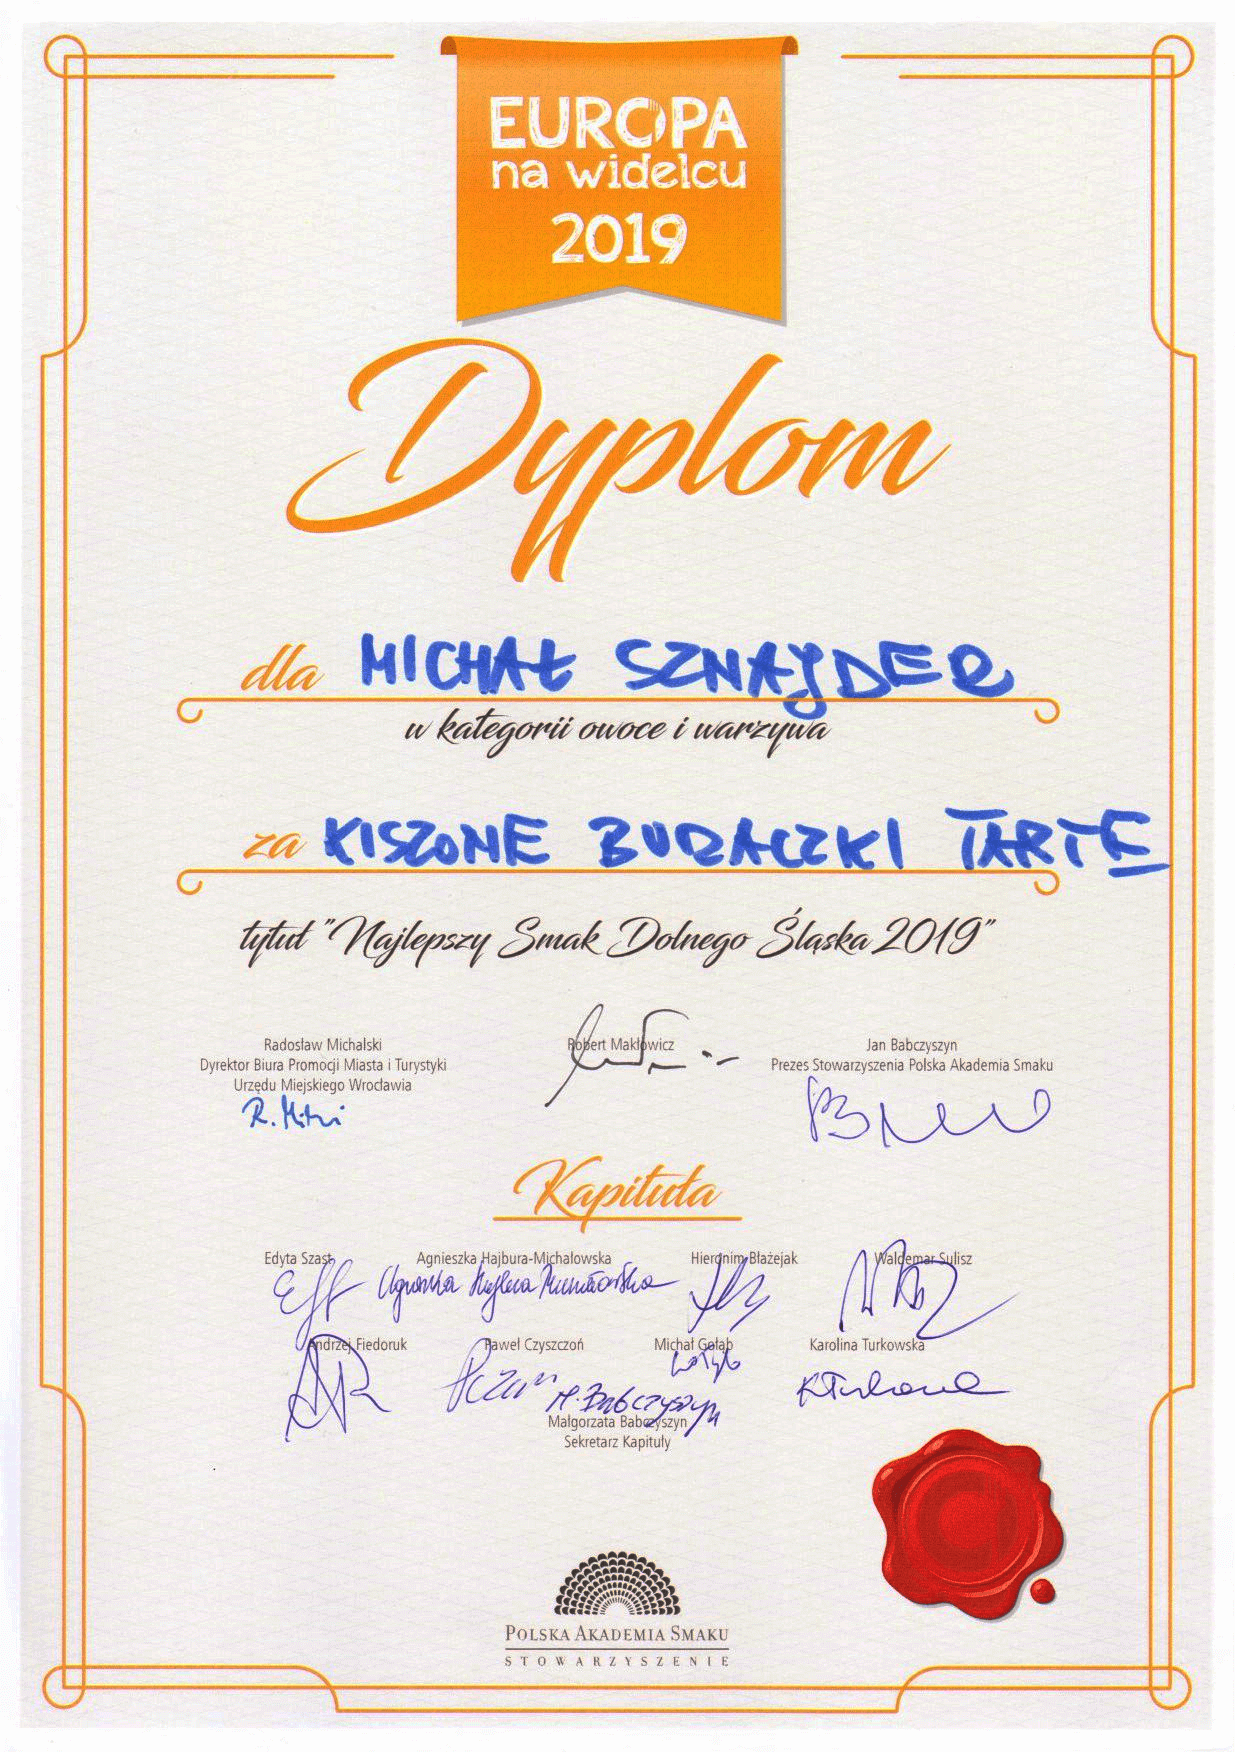 EUROPA
na widelcu
2019
Dyplom
dla MICHAŁ SZNAJDER
w kategorii owoce i warzywa
za KISZONE BURACZKI TARTE
tytuł "Najlepszy Smak Dolnego Śląska 2019"
Radosław Michalski
Dyrektor Biura Promocji Miasta i Turystyki
Urzędu Miejskiego Wrocławia
Robert Makłowicz
Jan Babczyszyn
Prezes Stowarzyszenia Polska Akademia Smaku
Kapituła
Edyta Szast
Agnieszka Hajbura-Michałowska
Hieronim Błażejak
Waldemar Sulisz
Agnieszka Hajbura Michałowska
Andrzej Fiedoruk
Paweł Czyszczoń
Michał Gołąb
Karolina Turkowska
M. Babczyszyn
Małgorzata Babczyszyn
Sekretarz Kapituły
POLSKA AKADEMIA SMAKU
STOWARZYSZENIE